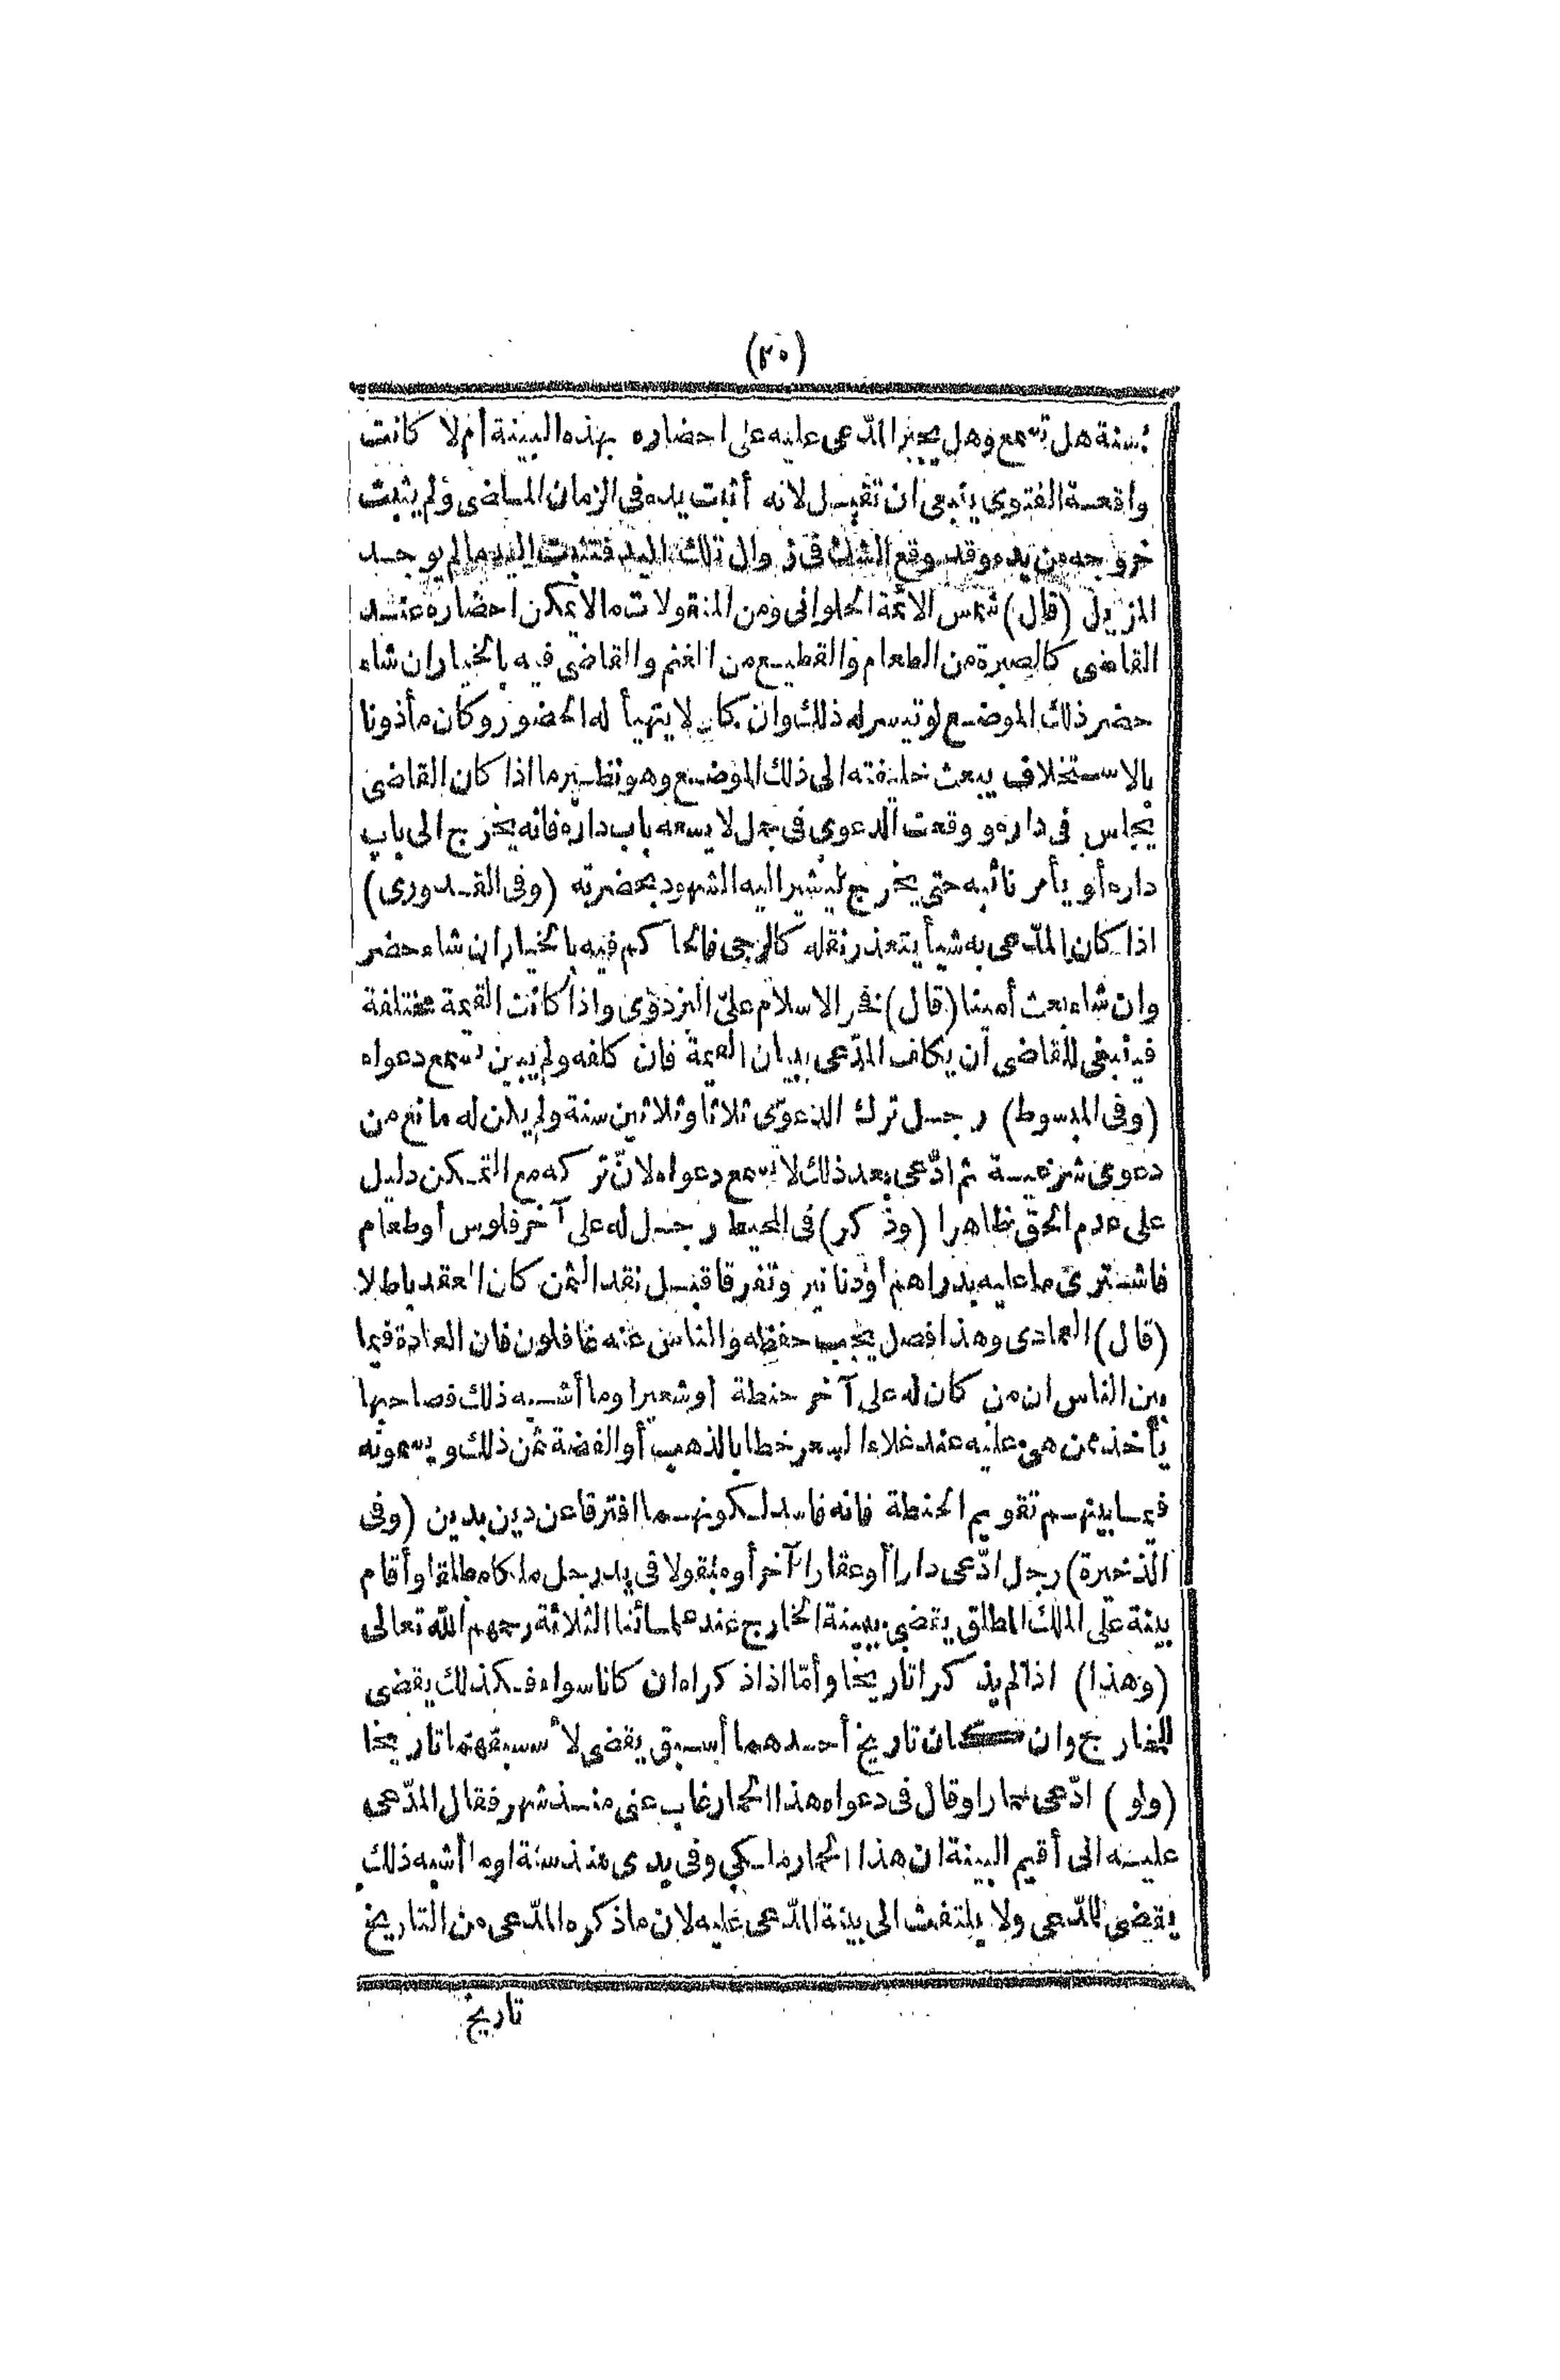 (٣٠)
بسنة هل تسمع وهل يجبر المدّعى عليه على احضاره بهذه البينة أم لا كانت
واقعة الفتوى ينبغى ان تقبل لانه أثبت يده فى الزمان الماضى ولم يثبت
خروجه من يده وقد وقع الشك فى زوال تلك اليد فتثبت اليد ما لم يوجد
المزيل (قال) شمس الائمة الحلوانى ومن المنقولات ما لا يمكن احضاره عند
القاضى كالصبرة من الطعام والقطيع من الغنم والقاضى فيه بالخيار ان شاء
حضر ذلك الموضع لو تيسر له ذلك وان كان لا يتهيأ له الحضور وكان مأذونا
بالاستخلاف يبعث خليفته الى ذلك الموضع وهو نظير ما اذا كان القاضى
يجلس فى داره و وقعت الدعوى فى جمل لا يسعه باب داره فانه يخرج الى باب
داره أو يأمر نائبه حتى يخرج ليشير اليه الشهود بحضرته (وفى القدورى)
اذا كان المدّعى به شيأ يتعذر نقله كالرحى فالحاكم فيه بالخيار ان شاء حضر
وان شاء بعث أمينا (قال) فخر الاسلام علىّ البزدوى واذا كانت القيمة مختلفة
فينبغى للقاضى أن يكلف المدّعى ببيان القيمة فان كلفه ولم يبين تسمع دعواه
(وفى المبسوط) رجل ترك الدعوى ثلاثا وثلاثين سنة ولم يكن له مانع من
دعوى شرعية ثم ادّعى بعد ذلك لا تسمع دعواه لانّ تركه مع التمكن دليل
على عدم الحق ظاهرا (وذكر) فى المحيط رجل له على آخر فلوس أو طعام
فاشترى ما عليه بدراهم أو دنانير وتفرقا قبل نقد الثمن كان العقد باطلا
(قال) العمادى وهذا فصل يجب حفظه والناس عنه غافلون فان العادة فيما
بين الناس ان من كان له على آخر حنطة أو شعيرا وما أشبه ذلك فصاحبها
يأخذ ممن هى عليه عند غلاء السعر خطا بالذهب أو الفضة ثمن ذلك ويسمونه
فيما بينهم تقويم الحنطة فانه فاسد لكونهما افترقا عن دين بدين (وفى
الذخيرة) رجل ادّعى دارا أو عقارا آخر أو منقولا فى يد رجل ملكا مطلقا وأقام
بينة على الملك المطلق يقضى ببينة الخارج عند علمائنا الثلاثة رحمهم الله تعالى
(وهذا) اذا لم يذكرا تاريخا وأمّا اذا ذكراه ان كانا سواء فكذلك يقضى
للخارج وان كان تاريخ أحدهما أسبق يقضى لأسبقهما تاريخا
(ولو) ادّعى حمارا وقال فى دعواه هذا الحمار غاب عنى منذ شهر فقال المدّعى
عليه انى أقيم البينة ان هذا الحمار ملكى وفى يدى منذ سنة او ما أشبه ذلك
يقضى للمدّعى ولا يلتفت الى بينة المدّعى عليه لان ما ذكره المدّعى من التاريخ
تاريخ